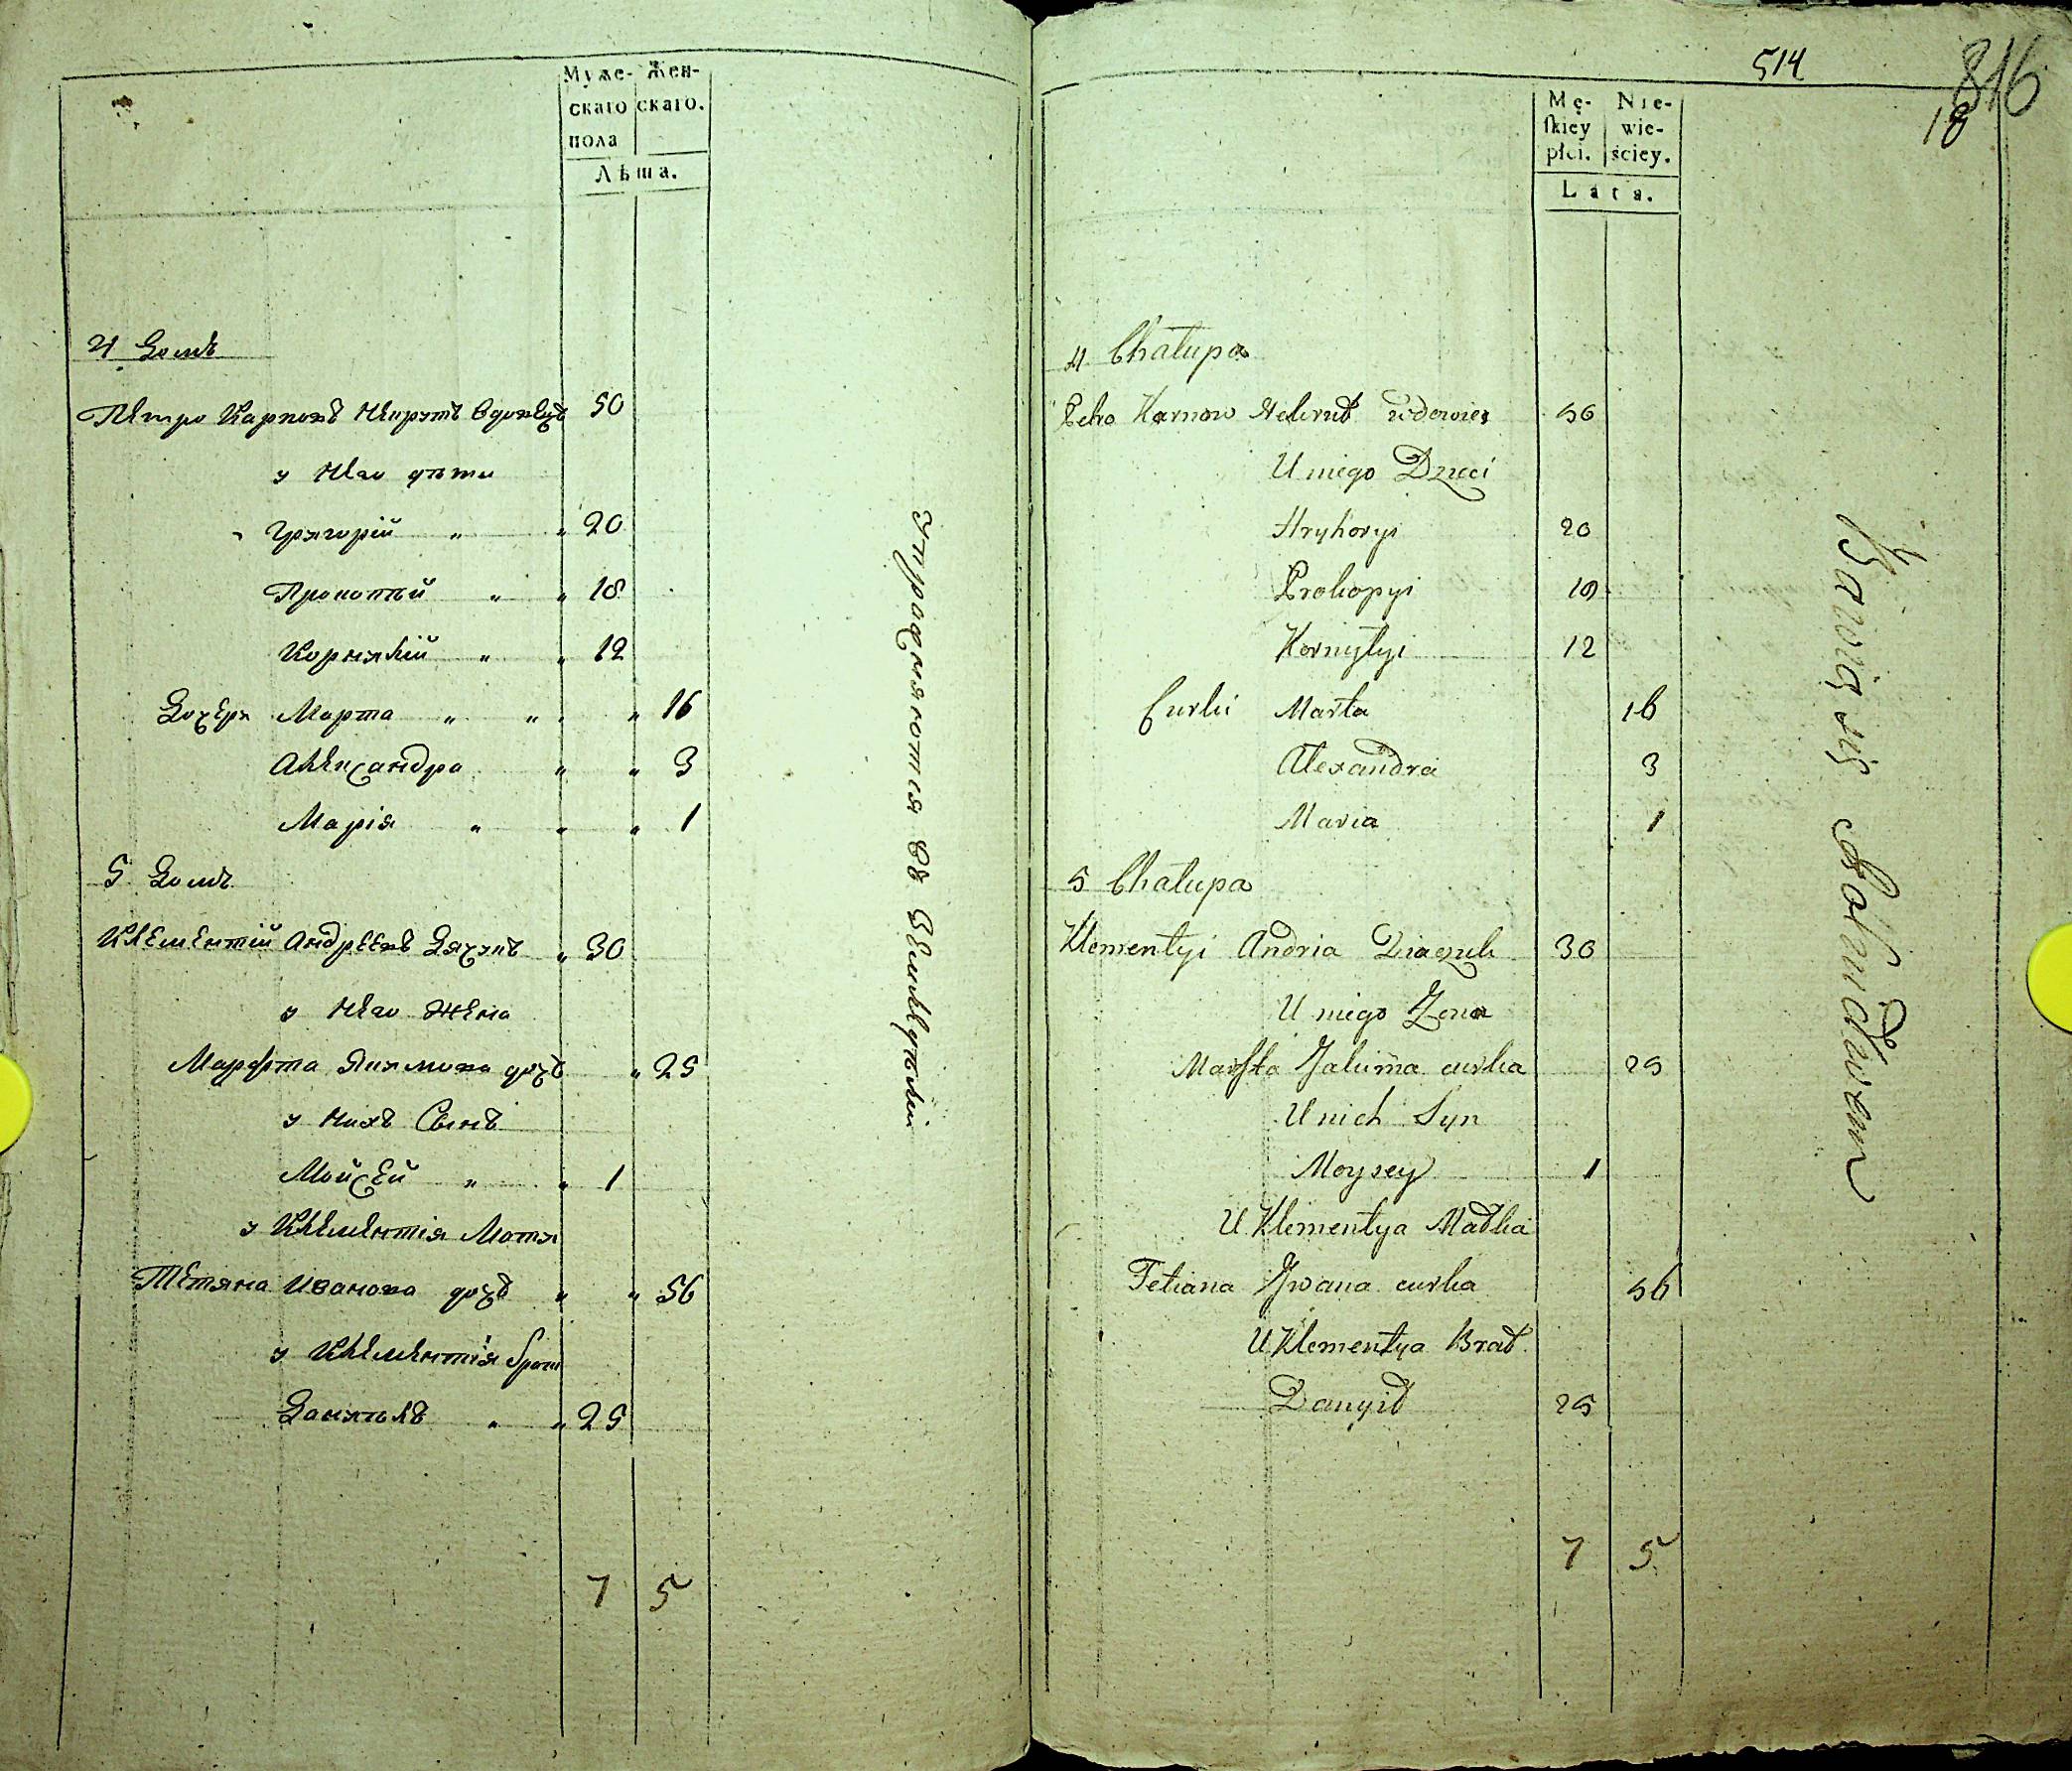 Муже- Жен-
скаго скаго.
пола
Лѣта.
4 Домъ
Петро Карповъ Некрутъ вдовецъ 50
у Него дѣти
Григорій " " 20
Прокопій " " 18
Корнилій " " 12
Дочери Марта " " " 16
Александра " " 3
Марія " " " 1
5 Домъ
Климентій Андреевъ Дячукъ " 30
у Него Жена
Марфта Якимова дочь " 25
у нихъ Сынъ
Мойсей " " 1
у Климентія Мати
Тетяна Иванова дочь " " 56
у Климентія братъ
Данилъ " " 25
7 5
Упражняются въ Земледѣліи
514
816
18
Mę- Nie-
skiey wie-
płci. ściey.
Lata.
4 Chałupa
Petro Karpow Nekrut wdowiec 50
U niego Dzieci
Hryhoryi 20
Prokopyi 18
Kornyłyi 12
Curki Marta 16
Alexandra 3
Maria 1
5 Chałupa
Klementyi Andria Diaczuk 30
U niego Zona
Marfta Jakima curka 25
U nich Syn
Moysey 1
U Klementya Matka
Tetiana Jwana curka 56
U Klementya Brat
Danyił 25
7 5
Bawią się Rolnictwem